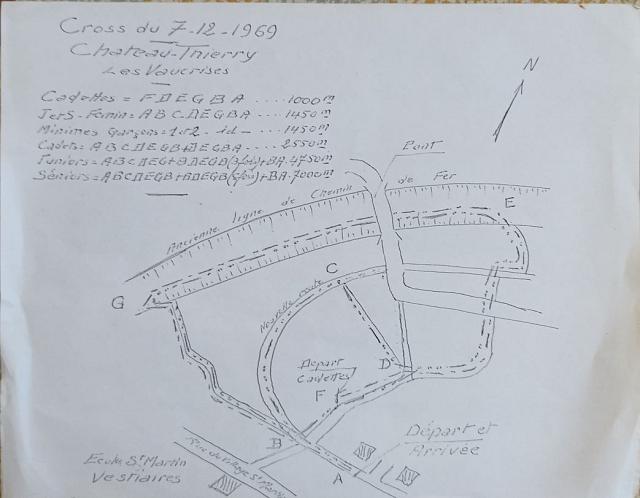 Cross du 7-12-1969
Chateau-Thierry
Les Vaucrises
Cadettes = F D E G B A .... 1000 m
Jers-Femin = A B C D E G B A .... 1450 m
Minimes Garçons = 1er 2 - id - .... 1450 m
Cadets = A B C D E G B + D E G B A .... 2550 m
Juniors = A B C D E G + B D E G B (3 fois) + BA . 4750 m
Séniors = A B C D E G B + B D E G B ( fois) + BA . 7000 m
N
Pont
Ancienne ligne de Chemin de Fer
E
G
C
Nouvelle route
D
Départ
Cadettes
F
B
Départ et
Arrivée
A
Rue du Village St Martin
Ecole St Martin
Vestiaires